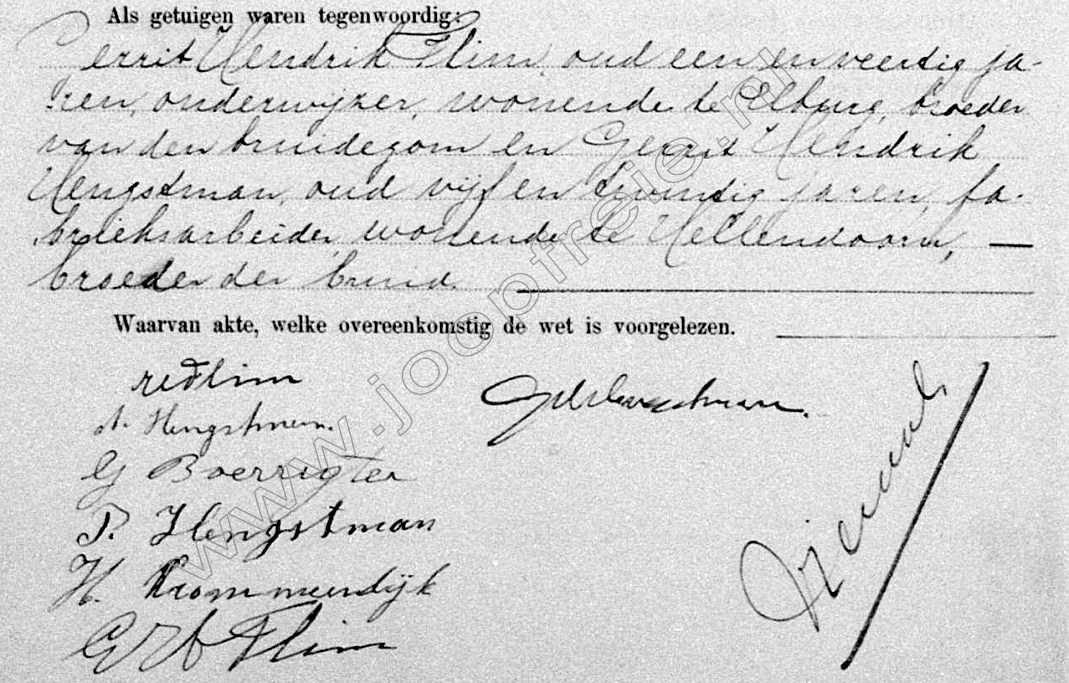 Als getuigen waren tegenwoordig:
Gerrit Hendrik Flim, oud een en veertig ja-
ren, onderwijzer, wonende te Elburg, broeder
van den bruidegom en Gerrit Hendrik
Hengstman, oud vijf en twintig jaren, fa-
brieksarbeider, wonende te Hellendoorn, —
broeder der bruid.
Waarvan akte, welke overeenkomstig de wet is voorgelezen.
A. Hengstman.
G Boerrigter
P. Hengstman
H. Krommendijk
GH Flim
www.jooptreie.nl